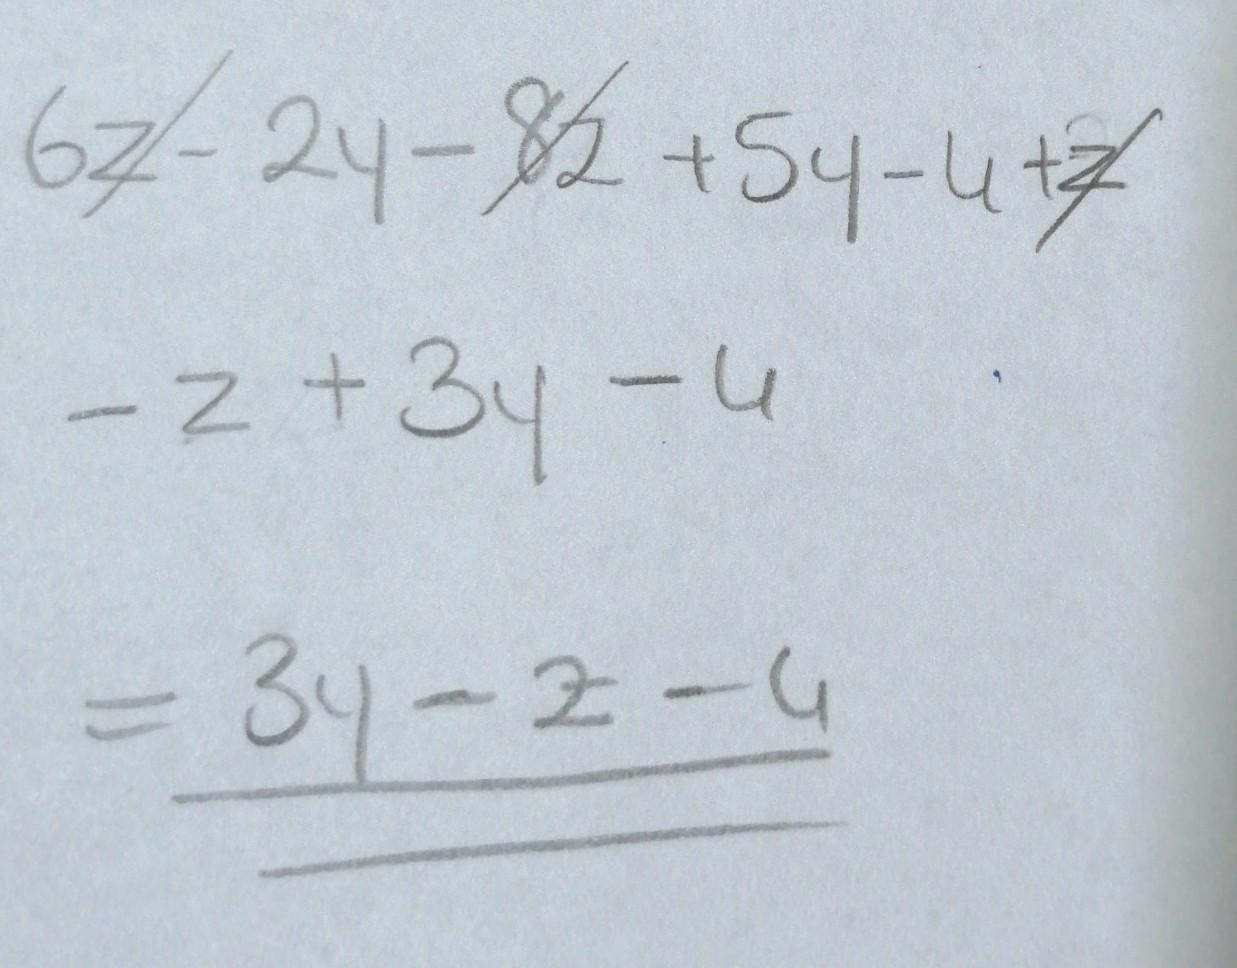 6z - 2y - 8z + 5y - 4 + z
- z + 3y - 4
= 3y - z - 4